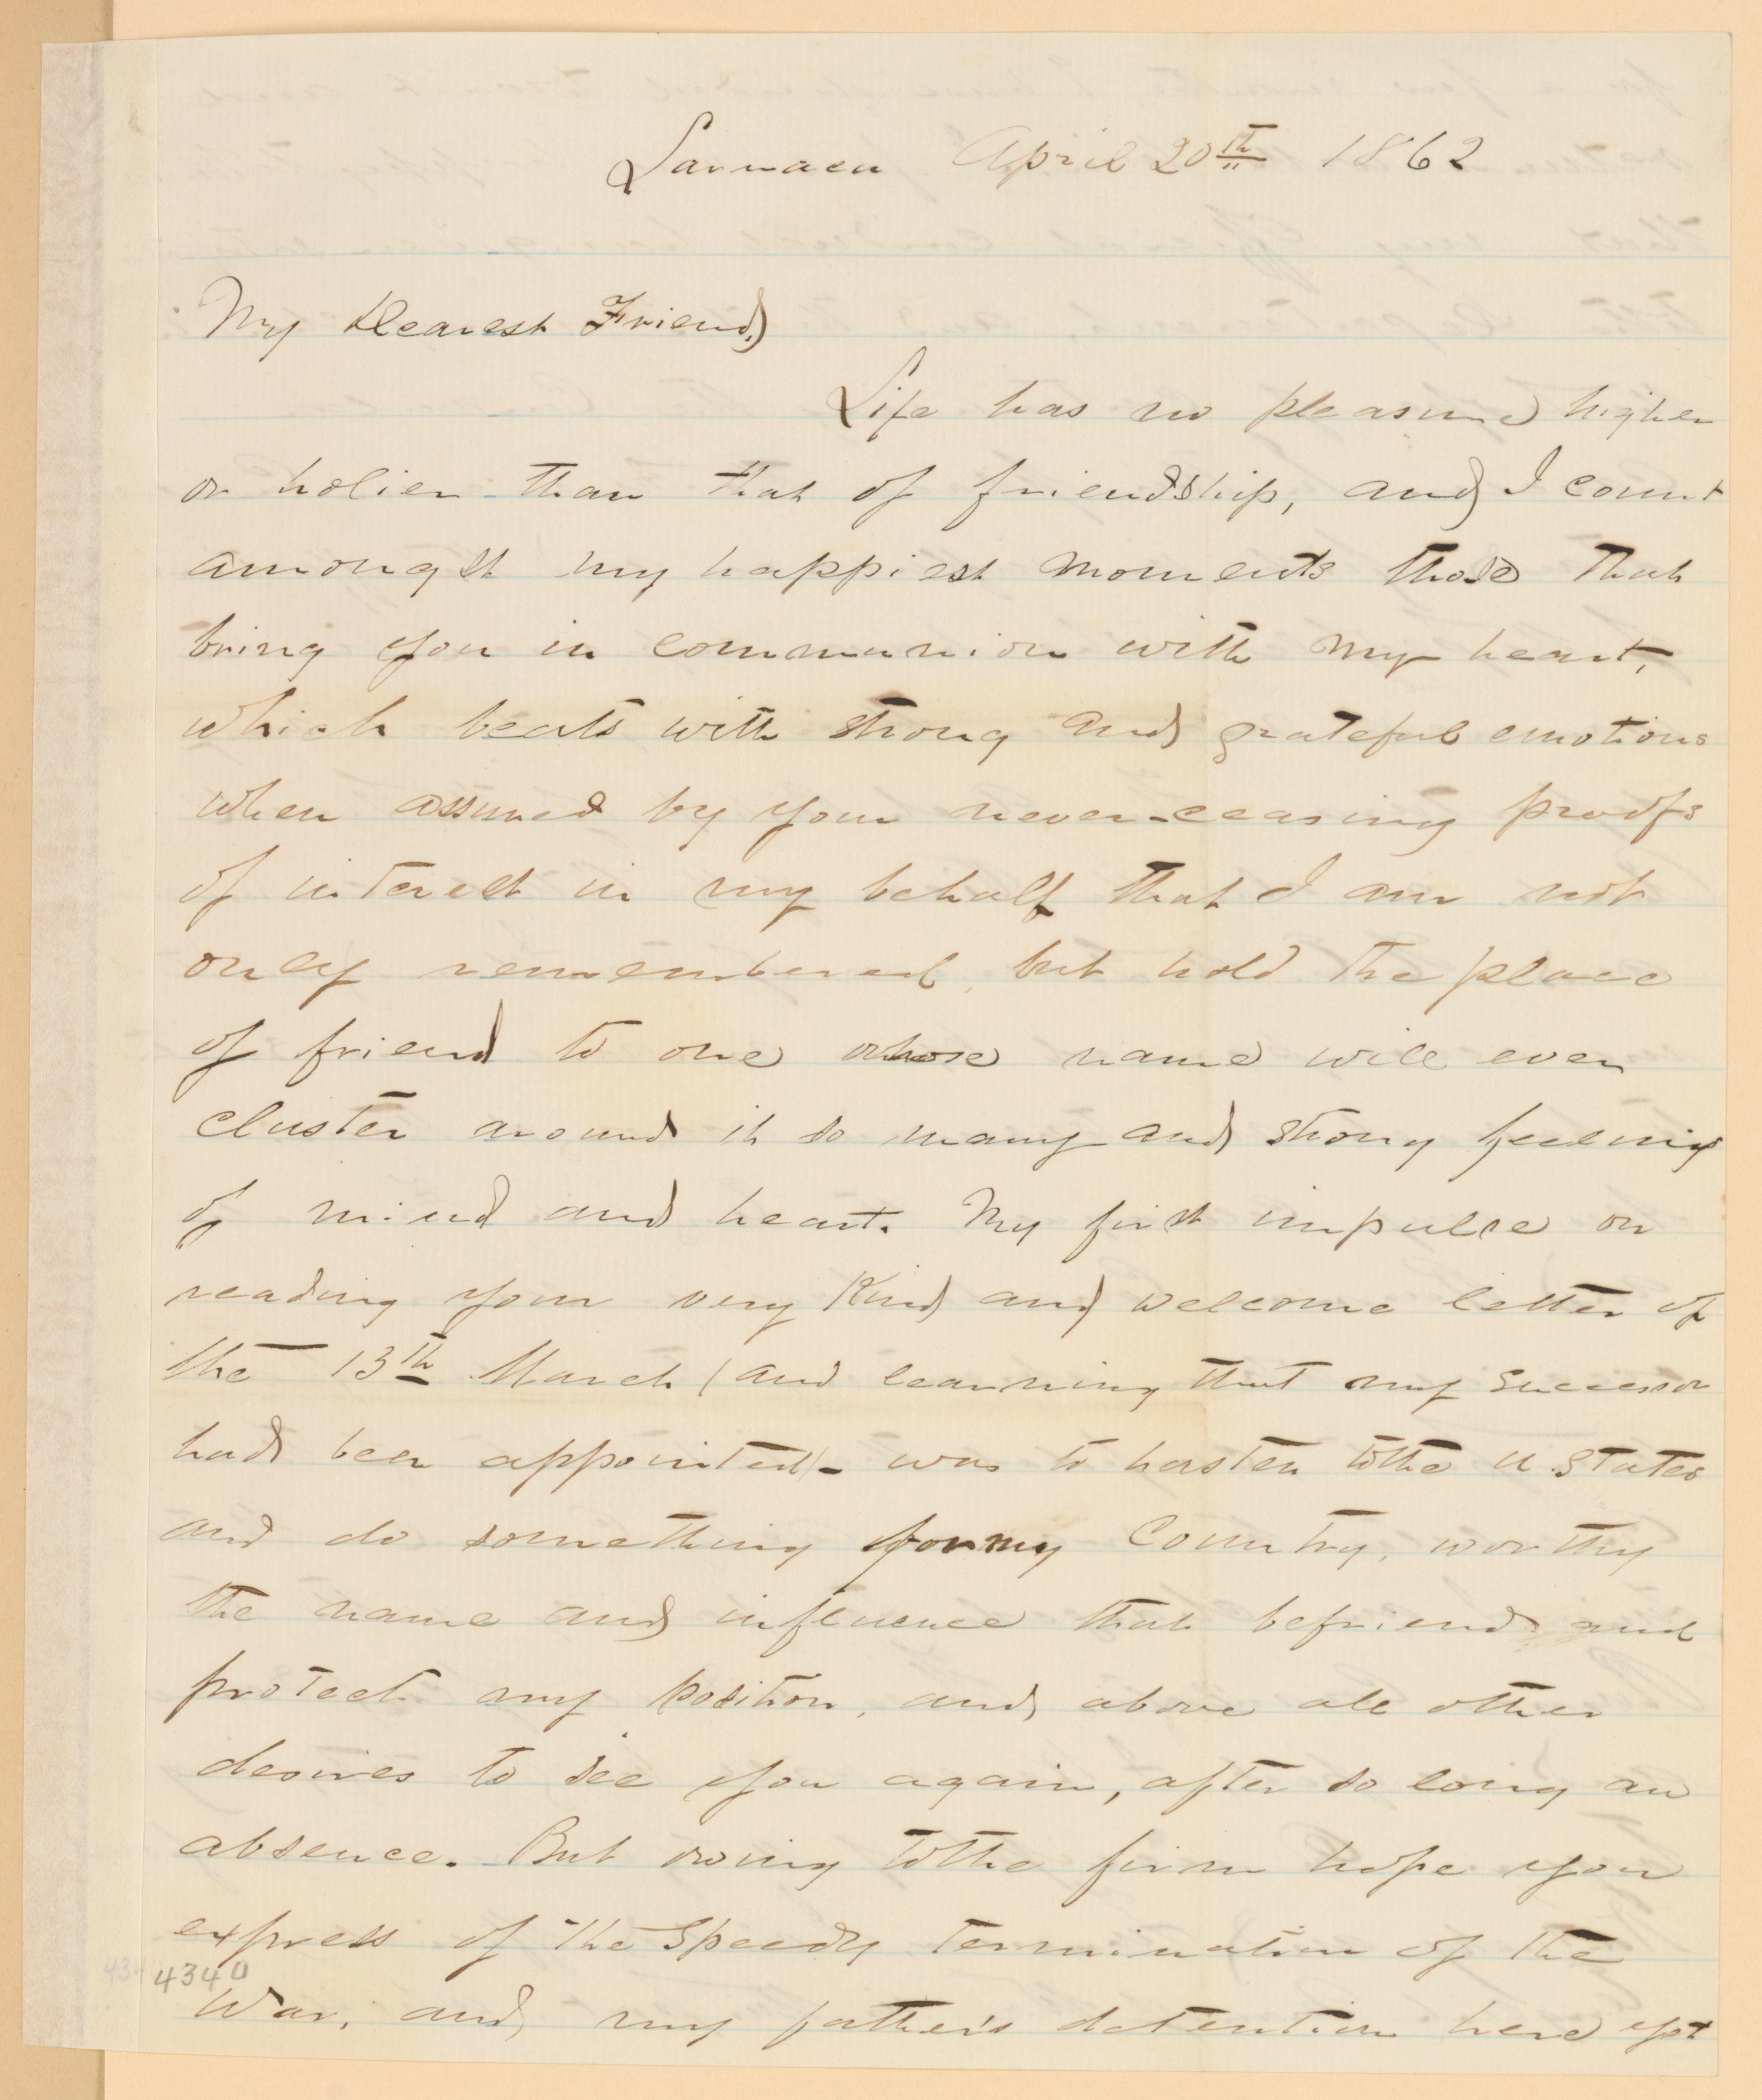 Larnaca April 20th 1862
My Dearest Friend,
Life has no pleasure higher
or holier than that of friendship, and I count
amongst my happiest moments those that
bring you in communion with my heart,
which beats with strong and grateful emotions
when assured by your never-ceasing proofs
of interest in my behalf that I am not
only remembered, but hold the place
of friend to one whose name will ever
cluster around it so many and strong feelings
of mind and heart. My first impulse on
reading your very kind and welcome letter of
the 13th March (and learning that my successor
had been appointed)- was to hasten to the U. States
and do something for my Country, worthy
the name and influence that befriend and
protect my position, and above all other
desires to see you again, after so long an
absence. But owing to the firm hope you
express of the speedy termination of the
War, and my father's detention here yet
4340